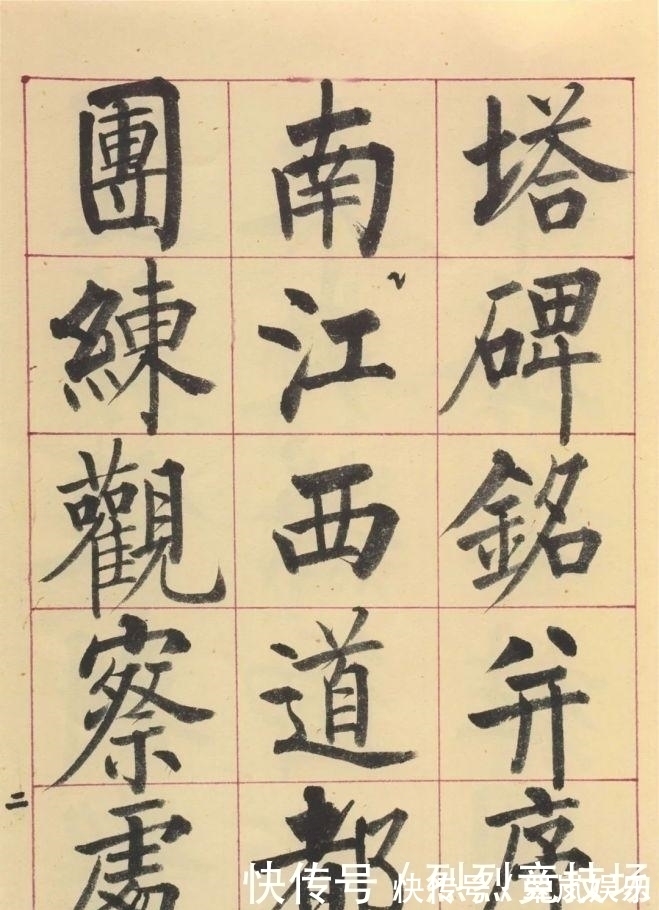 塔碑銘并序
南江西道都
團練觀察處
二
快传号/列列竞技场